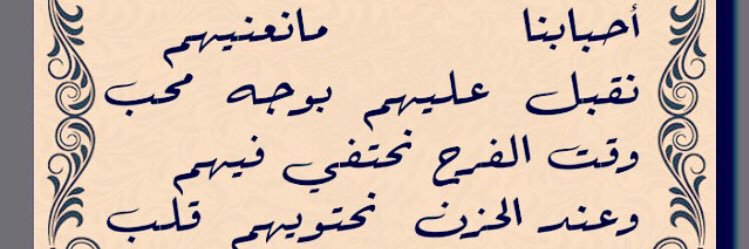 أحبابنا مانعنيهم
نقبل عليهم بوجه محب
وقت الفرح نحتفي فيهم
وعند الحزن نحتويهم قلب